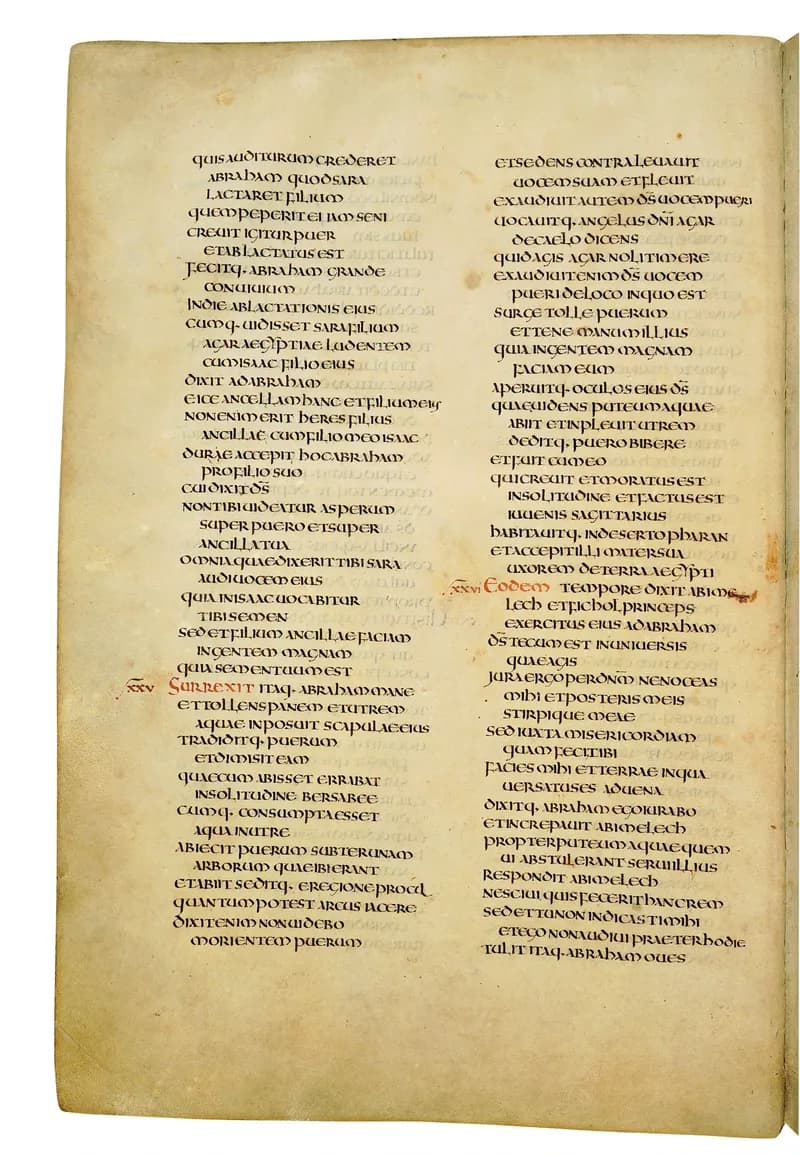 quis auditurum crederet
abraham quod sara
lactaret filium
quem peperit ei iam seni
creuit igitur puer
et ablactatus est
fecitq· abraham grande
conuiuium
in die ablactationis eius
cumq· uidisset sara filium
agar aegyptiae ludentem
cum isaac filio eius
dixit ad abraham
eice ancellam hanc et filium eius
non enim erit heres filius
ancillae cum filio meo isaac
durae accepit hoc abraham
pro filio suo
cui dixit d̄s
non tibi uideatur asperum
super puero et super
ancilla tua
omnia quae dixerit tibi sara
audi uocem eius
quia in isaac uocabitur
tibi semen
sed et filium ancillae faciam
in gentem magnam
quia semen tuum est
xxv Surrexit itaq· abraham mane
et tollens panem et utrem
aquae inposuit scapulae eius
tradiditq· puerum
et dimisit eam
quae cum abisset errabat
in solitudine bersabee
cumq· consumpta esset
aqua in utre
abiecit puerum subter unam
arborum quae ibi erant
et abiit seditq· e regione procul
quantum potest arcus iacere
dixit enim non uidebo
morientem puerum
et sedens contra leuauit
uocem suam et fleuit
exaudiuit autem d̄s uocem pueri
uocauitq· angelus dn̄i agar
de caelo dicens
quid agis agar noli timere
exaudiuit enim d̄s uocem
pueri de loco in quo est
surge tolle puerum
et tene manum illius
quia in gentem magnam
faciam eum
aperuitq· oculos eius d̄s
quae uidens puteum aquae
abiit et inpleuit utrem
deditq· puero bibere
et fuit cum eo
qui creuit et moratus est
in solitudine et factus est
iuuenis sagittarius
habitauitq· in deserto pharan
et accepit illi mater sua
uxorem de terra aegypti
xxvi Eodem tempore dixit abime
lech et fichol princeps
exercitus eius ad abraham
d̄s tecum est in uniuersis
quae agis
iura ergo per dn̄m ne noceas
mihi et posteris meis
stirpique meae
sed iuxta misericordiam
quam feci tibi
facies mihi et terrae in qua
uersatus es aduena
dixitq· abraham ego iurabo
et increpauit abimelech
propter puteum aquae quem
ui abstulerant serui illius
respondit abimelech
nesciui quis fecerit hanc rem
sed et tu non indicasti mihi
et ego non audiui praeter hodie
tulit itaq· abraham oues